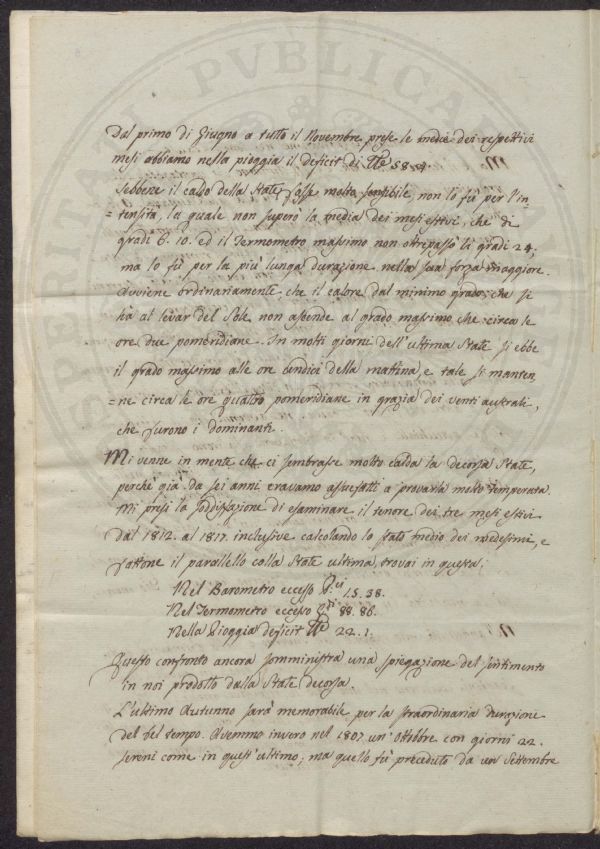 Dal primo di Giugno a tutto il Novembre prese le medie dei respettivi
mesi abbiamo nella pioggia il deficit di 58.4.
Sebbene il caldo della State fosse molto sensibile, non lo fù per l'in
=tensità, la quale non superò la media dei mesi estivi, che di
gradi 6.10. ed il Termometro massimo non oltrepassò li gradi 24,
ma lo fù per la più lunga durazione nella sua forza maggiore.
Avviene ordinariamente che il calore dal minimo grado, che si
ha al levar del Sole non ascende al grado massimo che circa le
ore due pomeridiane. In molti giorni dell'ultima State si ebbe
il grado massimo alle ore undici della mattina, e tale si manten
=ne circa le ore quattro pomeridiane in grazia dei venti australi,
che furono i dominanti.
Mi venne in mente che ci sembrasse molto calda la decorsa State,
perchè già da sei anni eravamo assuefatti a provarla molto temperata.
Mi presi la soddisfazione di esaminare il tenore dei tre mesi estivi
dal 1812. al 1817. inclusive calcolando lo stato medio dei medesimi, e
fattone il parallello colla State ultima, trovai in questa:
Nel Barometro eccesso 15.38.
Nel Termometro eccesso 88.86.
Nella Pioggia deficit 22.1.
Questo confronto ancora somministra una spiegazione del sentimento
in noi prodotto dalla State decorsa.
L'ultimo Autunno sarà memorabile per la straordinaria durazione
del bel tempo. Avemmo invero nel 1807. un'Ottobre con giorni 22.
sereni come in quest'ultimo; ma quello fù preceduto da un Settembre